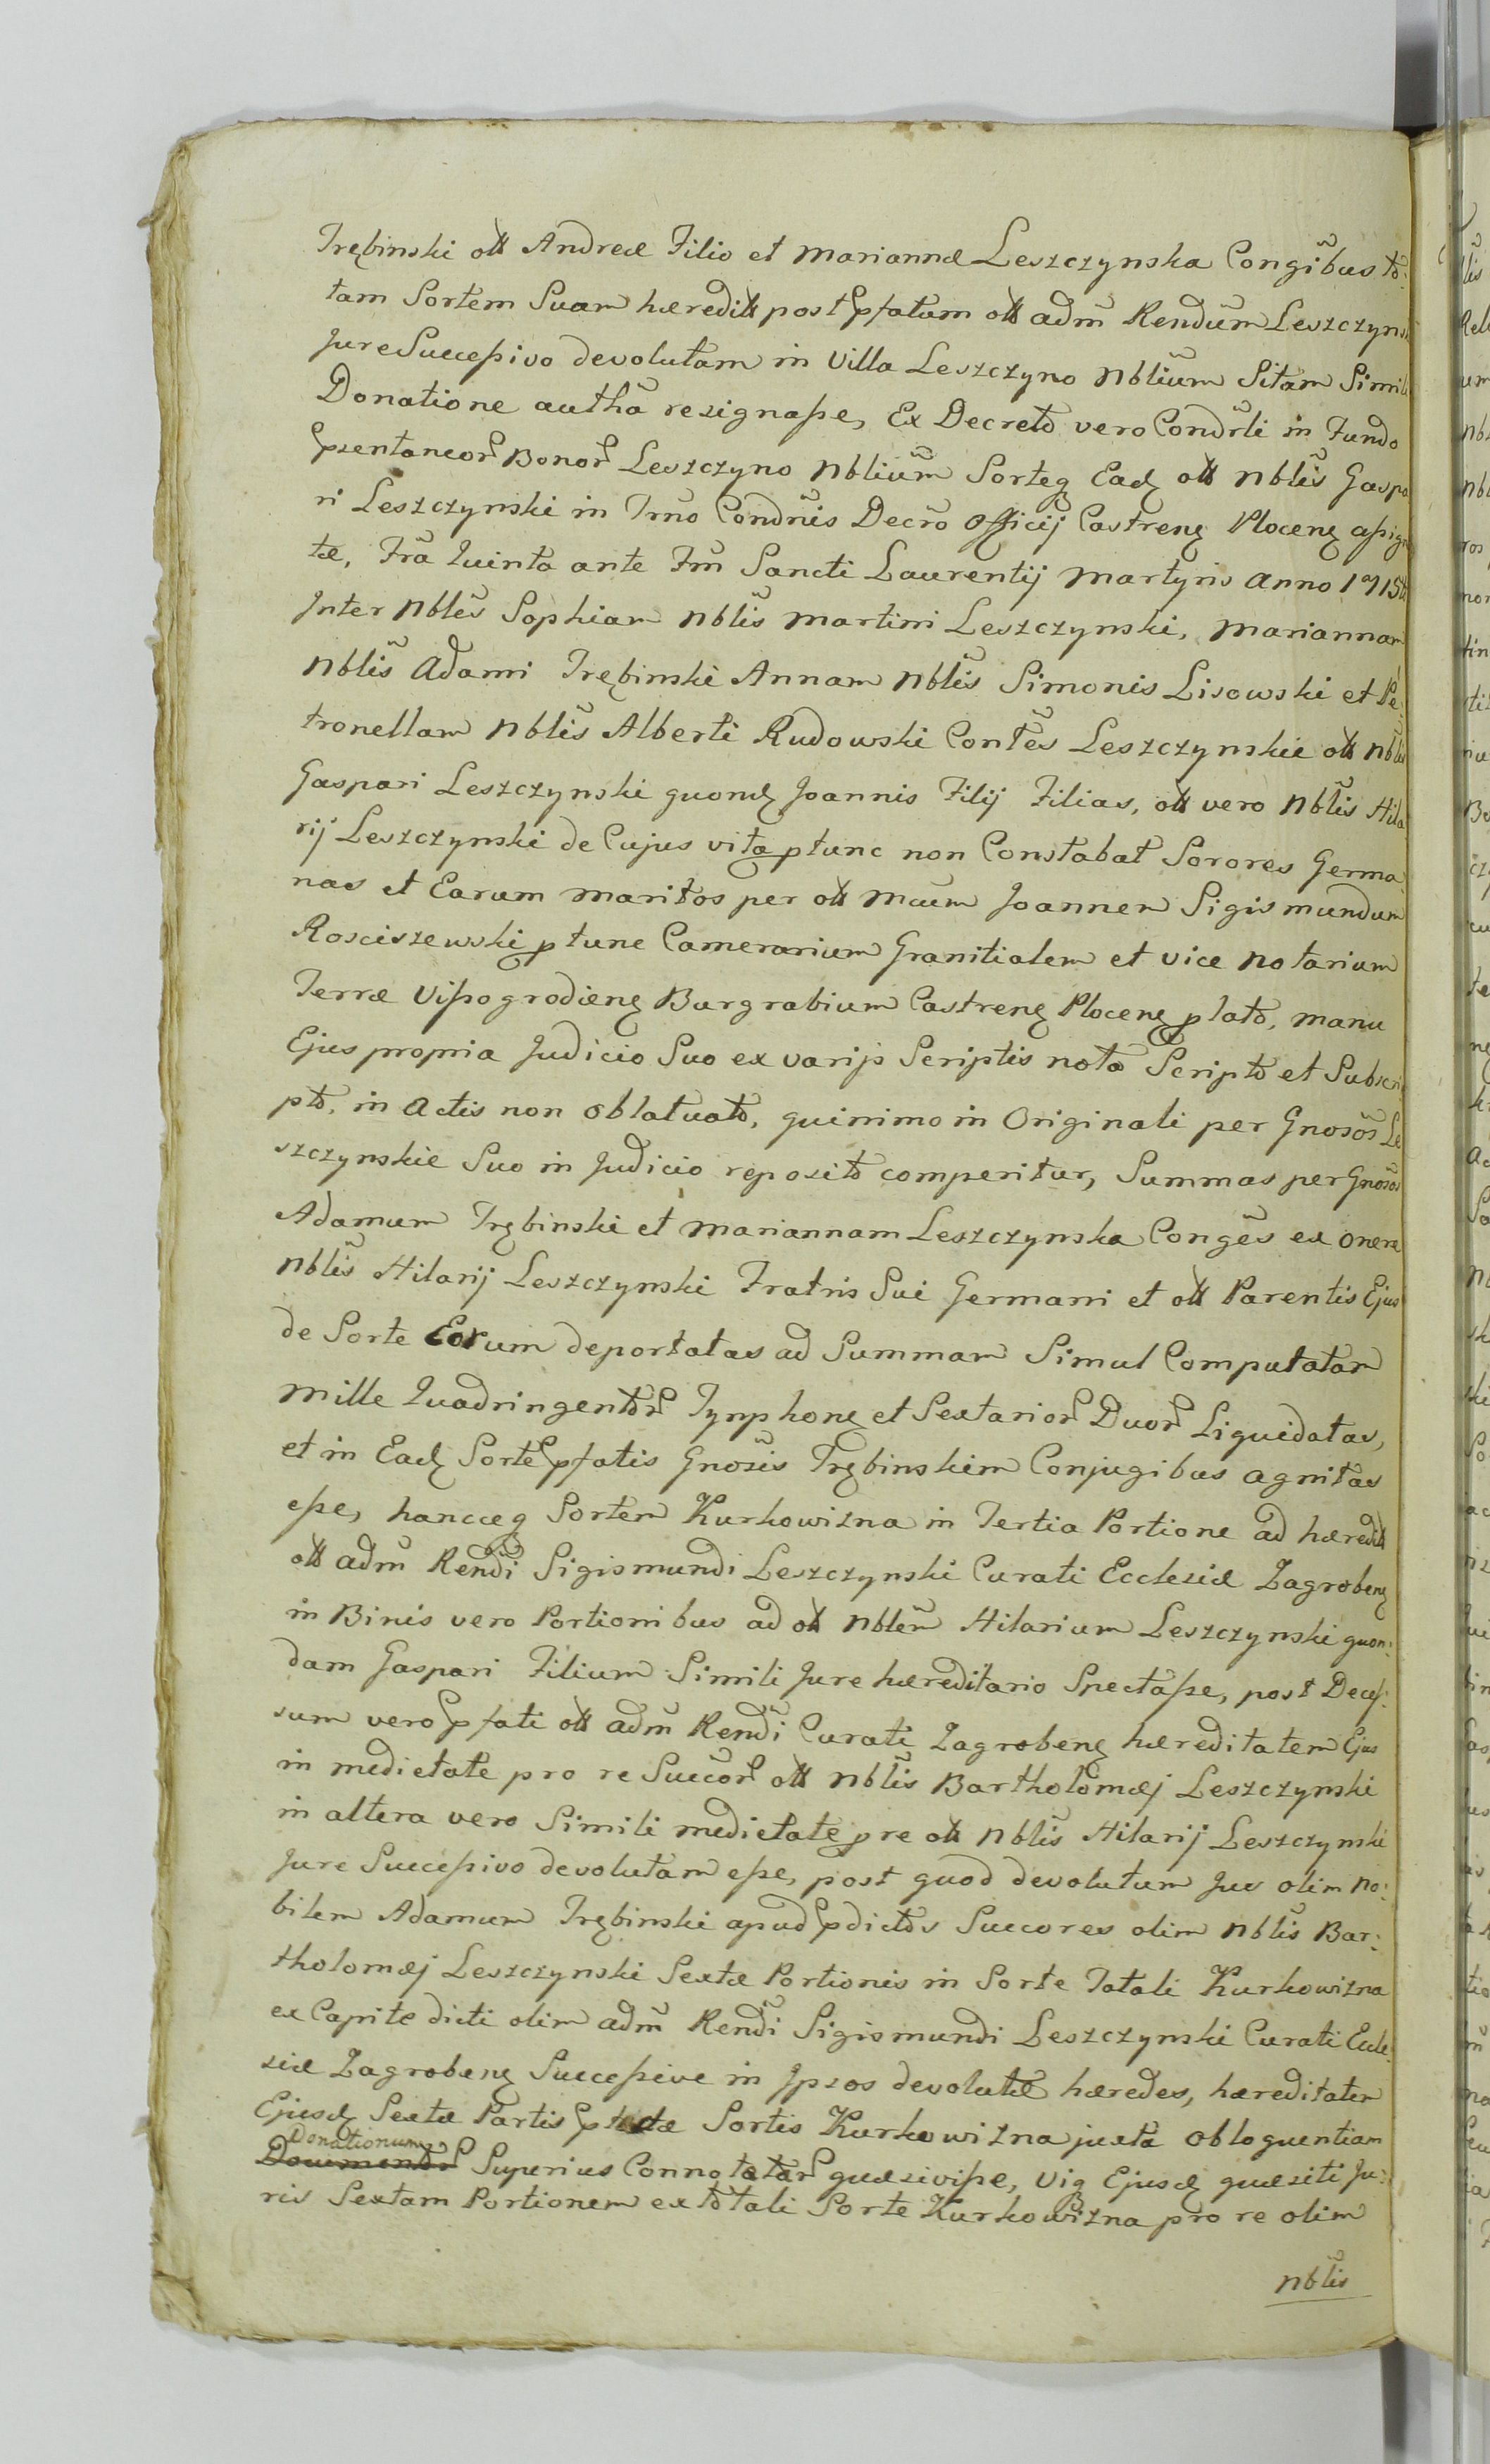 Trębinski oll Andreæ Filio et Mariannæ Leszczynska Congibus to:
tam Sortem Suam hæredit post pfatum oll adm Rendum Leszczyns
Jure Succeßivo devolutam in Villa Leszczyno Nblium Sitam Simili
Donatione autha resignaße, Ex Decreto vero Condrli in Fundo
Psentaneor Bonor Leszczyno Nblium Sorteq Eadz oll Nblis Gaspa
ri Leszczynski in Trno Condnis Decro Officij Castrenz Plocenz aßign
tæ, Fra Quinta ante Fm Sancti Laurentij Martyris Anno 1715to
Inter Nbles Sophiam Nblis Martini Leszczynski, Mariannam
Nblis Adami Trębinski Annam Nblis Simonis Lisowski et Pe:
tronellam Nblis Alberti Rudowski Contes Leszczynskie oll Nblis
Gaspari Leszczynski quondz Joannis Filij Filias, oll vero Nblis Hila
rij Leszczynski de Cujus vita ptunc non Constabat Sorores Germa
nas et Earum Maritos per oll Mcum Joannem Sigismundum
Rosciszewski ptunc Camerarium Granitialem et Vice Notarium
Terræ Vißogrodienz Burgrabium Castrenz Plocenz plato, manu
Ejus propria Judicio Suo ex varijs Scriptis nota Scripto et Subscri
pto, in Actis non Oblatuato, quinimo in Originali per Gnosos Le
szczynskie Suo in Judicio reposito comperitur, Summas per Gnosos
Adamum Trębinski et Mariannam Leszczynska Conges ex Onere
Nblis Hilarij Leszczynski Fratris Sui Germani et oll Parentis Ejus
de Sorte Eorum deportatas ad Summam Simul Computatam
Mille Quadringentor Tynphonz et Sextarior Duor Liquidatas,
et in Eadz Sorte pfatis Gnosis Trębinskim Conjugibus agnitas
eße, hancæq Sortem Kurkowizna in Tertia Portione ad hæredit
oll adm Rendi Sigismundi Leszczynski Curati Ecclesiæ Zagrobenz
in Binis vero Portionibus ad oll Nblem Hilarium Leszczynski quon:
dam Gaspari Filium Simili Jure hæreditario Spectaße, post Deceß:
sum vero pfati oll adm Rendi Curati Zagrobenz hæreditatem Ejus
in medietate pro re Succor oll Nblis Bartholomæj Leszczynski
in altera vero Simili medietate p re oll Nblis Hilarij Leszczynski
Jure Succeßivo devolutam eße, post quod devolutum Jus olim No:
bilem Adamum Trębinski apud pdictos Succores olim Nblis Bar:
tholomæj Leszczynski Sextæ Portionis in Sorte Totali Kurkowizna
ex Capite dicti olim adm Rendi Sigismundi Leszczynski Curati Eccle:
siæ Zagrobenz Succeßive in Ipsos devolutæ hæredes, hæreditatem
Ejusdz Sextæ Partis Sortis Kurkowizna juxta obloquentiam
Donationum
Documentor Superius Connotatar quæsiviße, Vig Ejusdz quæsiti Ju:
ris Sextam Portionem ex totali Sorte Kurkowizna pro re olim
nblis